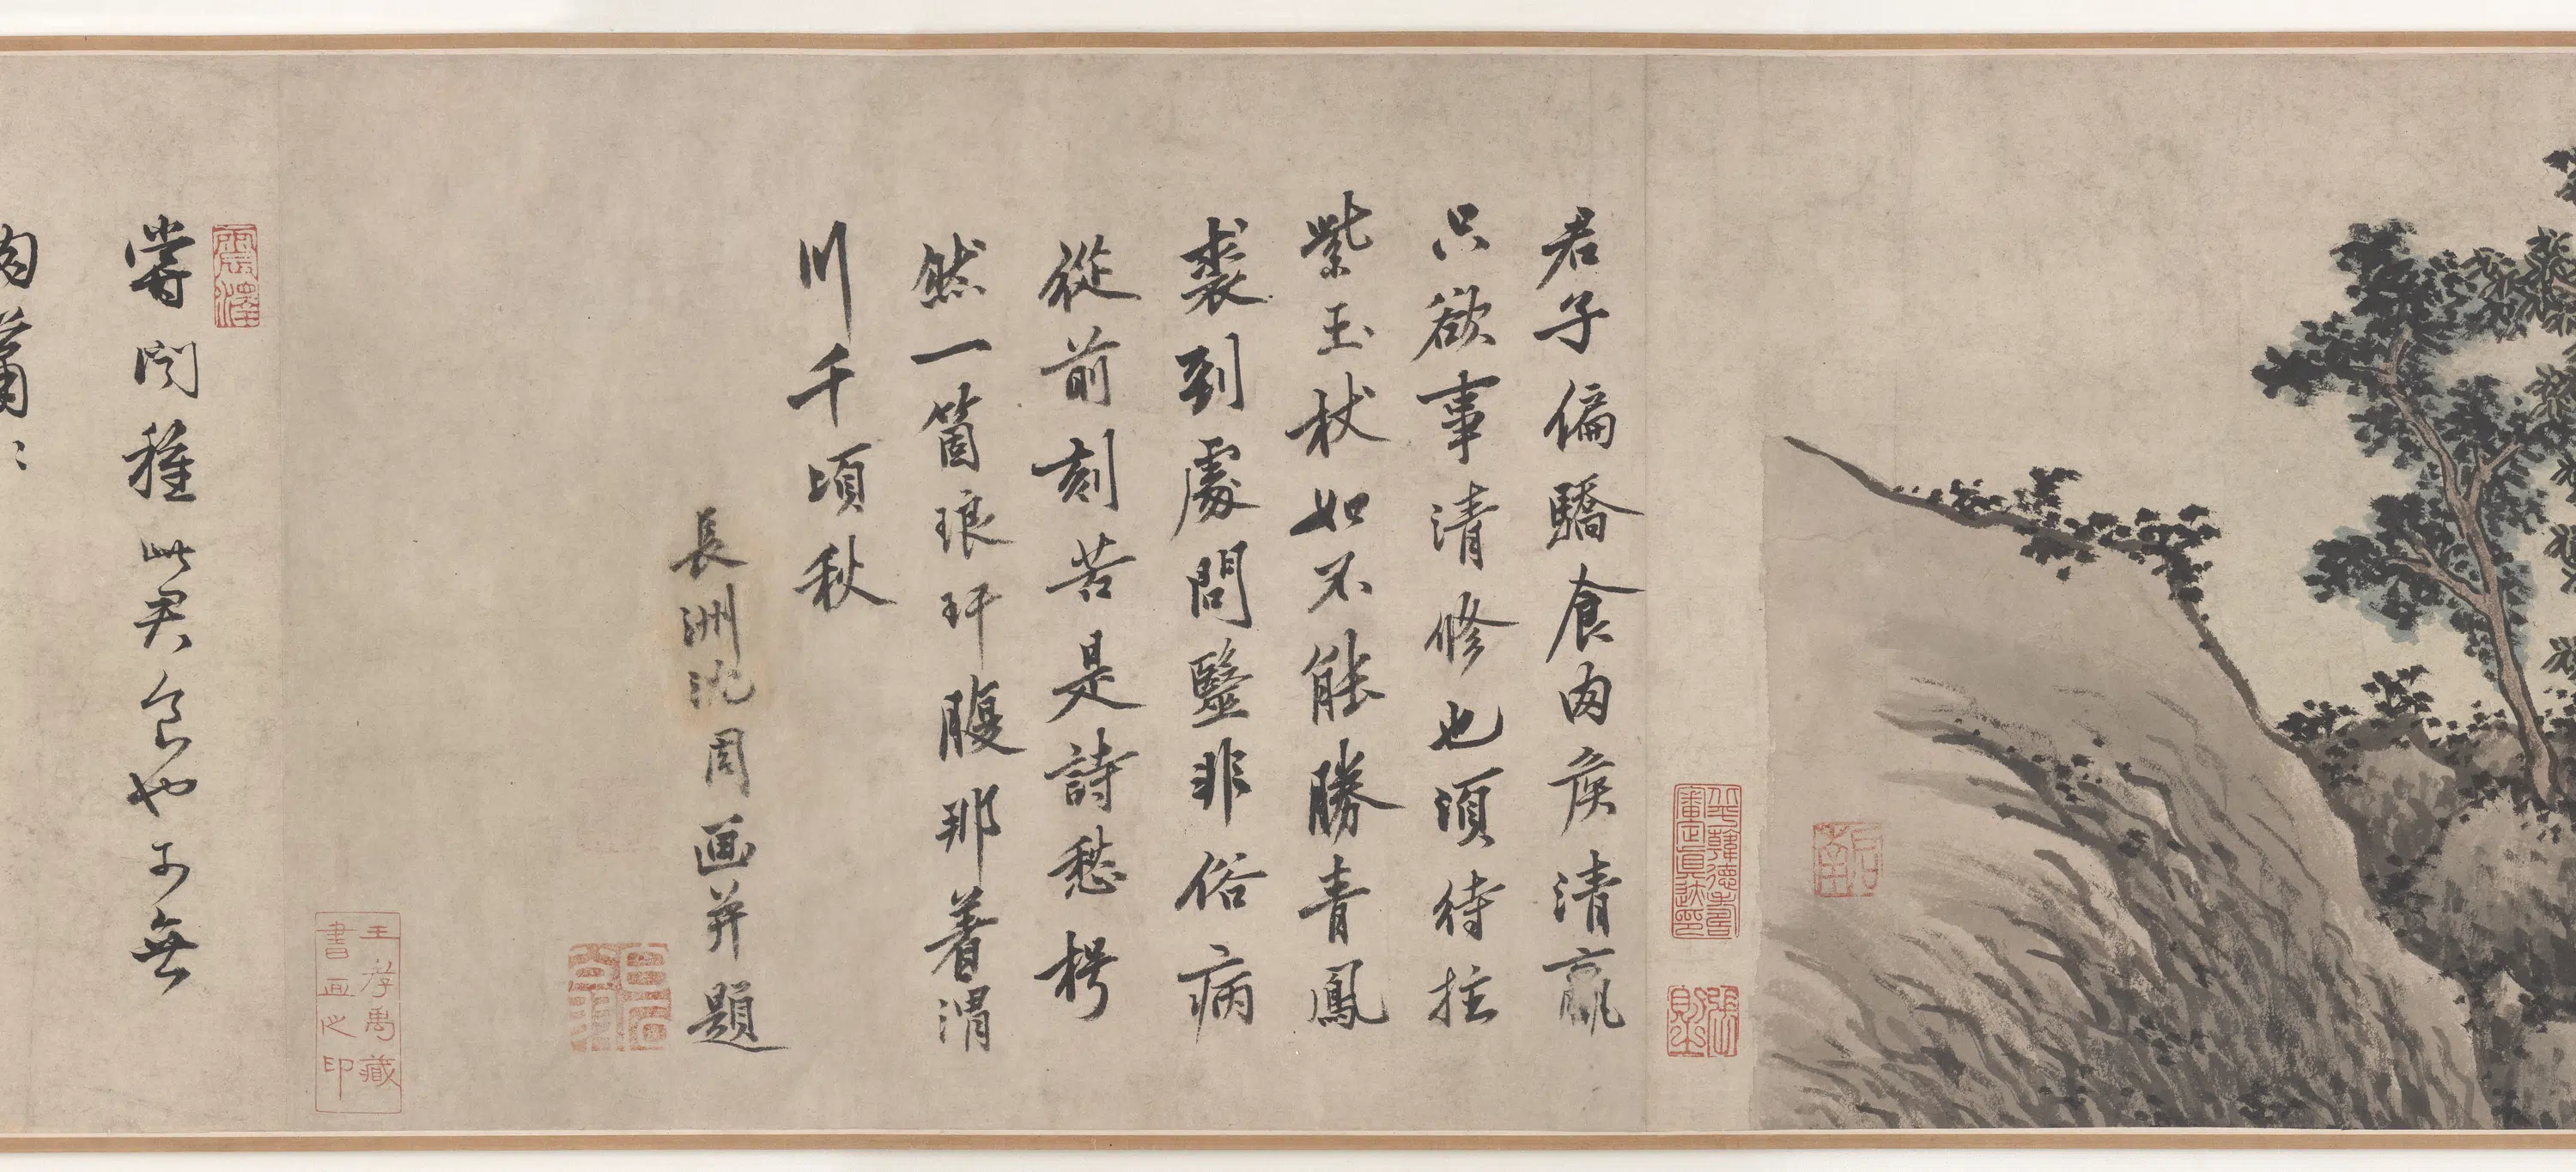 啟南
張則之
君子偏驕食肉矦清羸
只欲事清修也須待拄
紫玉杖如不能勝青鳳
裘到處問毉非俗病
從前刻苦是詩愁枵
然一箇琅玕腹那着渭
川千頃秋
長洲沈周画并題
王孝禹藏
書画之印
震澤
嘗聞種此君食也可無
肉瀟〻